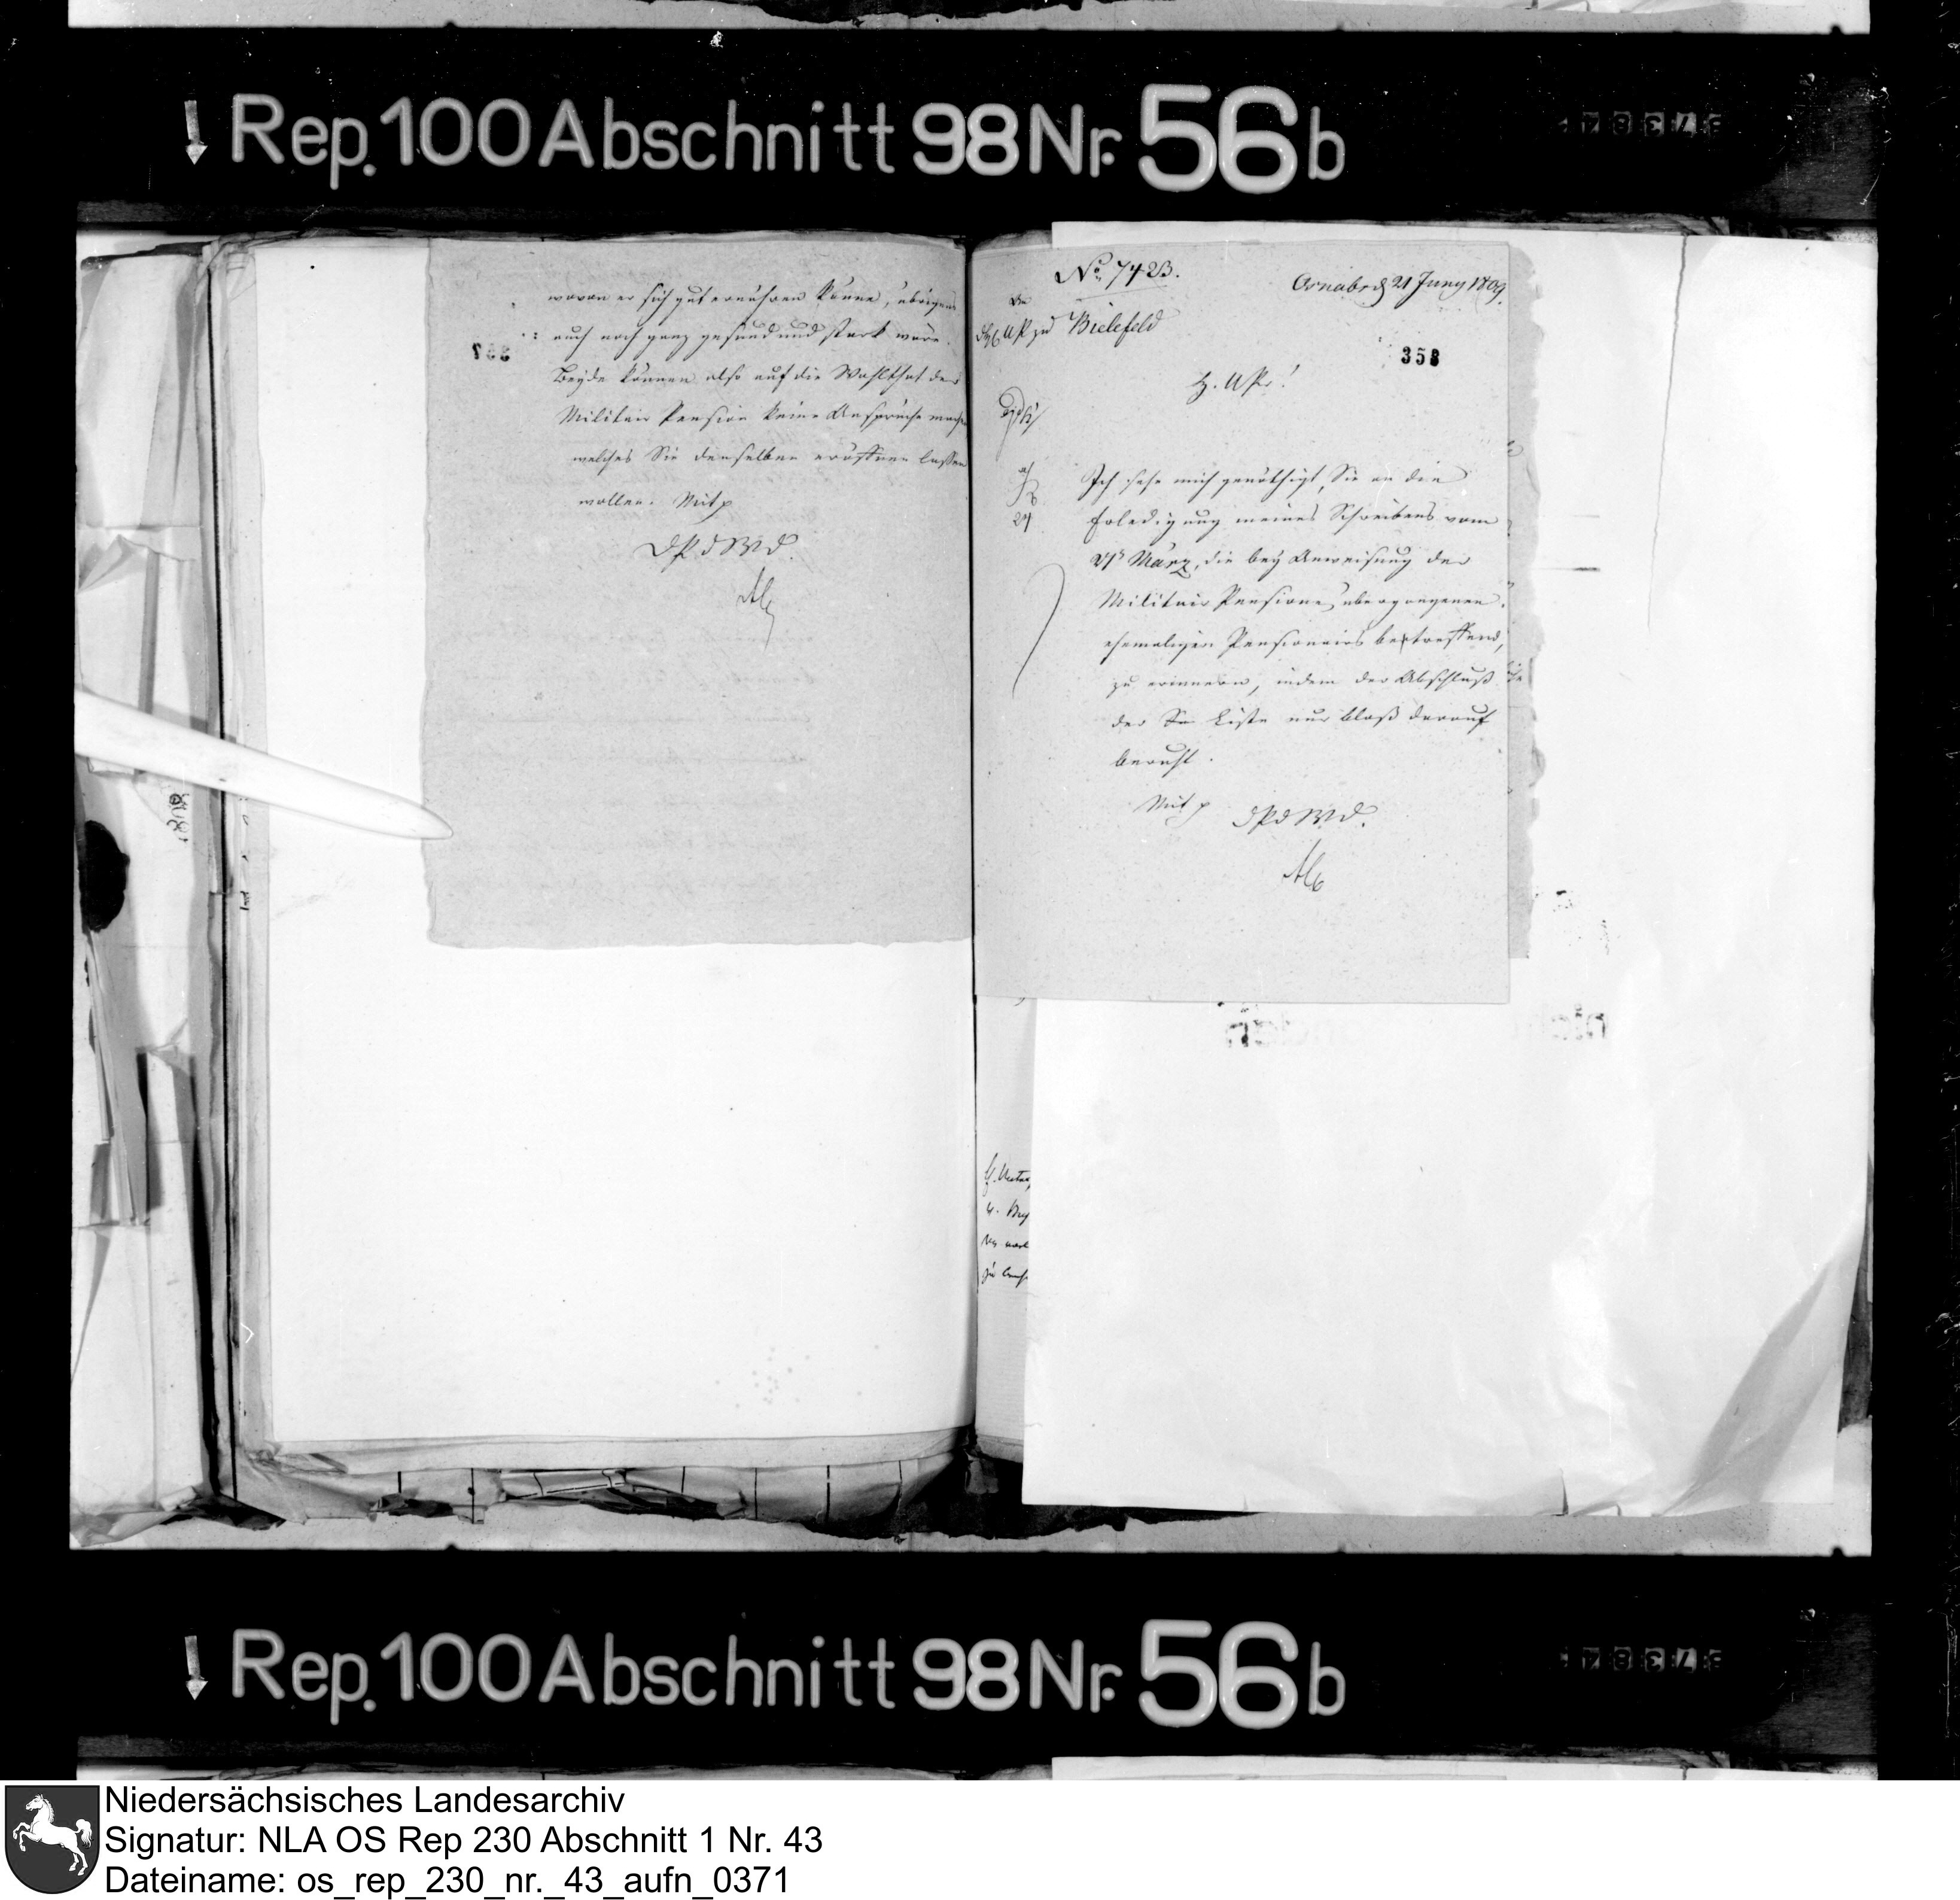 Rep. 100 Abschnitt 98 Nr. 56 b
wovon er sich gut ernähren könne, übrigens
auch noch ganz gesund und stark wäre.
Beyde können also auf die Wohlthat der
Militair Pension keine Ansprüche machen
welches Sie denselben eröffnen lassen
wollen. Mit p
DPdWD.
No. 7423.
Osnabr d 21 Juny 1809.
An
UPr zu Bielefeld
358
H. UPr!
Ich sehe mich genöthigt, Sie an die
Erledigung meines Schreibens vom
März, die bey Anweisung der
Militair Pensionen übergangenen
ehemaligen Pensionairs betreffend,
zu erinnern, indem der Abschluß
der Liste nur bloß darauf
beruht.
Mit p
DPdWD.
Rep. 100 Abschnitt 98 Nr. 56 b
Niedersächsisches Landesarchiv
Signatur: NLA OS Rep 230 Abschnitt 1 Nr. 43
Dateiname: os_rep_230_nr._43_aufn_0371